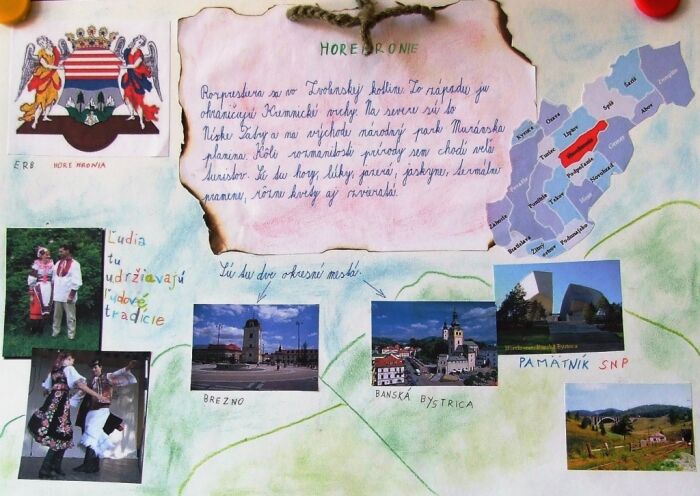 HOREHRONIE
Rozprestiera sa vo Zvolenskej kotline. Zo západu ju
ohraničujú Kremnické vrchy. Na severe sú to
Nízke Tatry a na východe národný park Muránska
planina. Kôli rozmanitosti prírody sem chodí veľa
turistov. Sú tu hory, lúky, jazerá, jaskyne, termálne
pramene, rôzne kvety aj zvieratá.
ERB HOREHRONIA
Kysuce
Orava
Liptov
Spiš
Šariš
Zemplín
Abov
Turiec
Horehronie
Gemer
Považie
Podpoľanie
Ponitrie
Tekov
Novohrad
Hont
Záhorie
Bratislava
Žitný
ostrov
Podunajsko
Ľudia
tu
udržiavajú
ľudové
tradície
Sú tu dve okresné mestá:
BREZNO
BANSKÁ BYSTRICA
Banská Bystrica
PAMÄTNÍK SNP